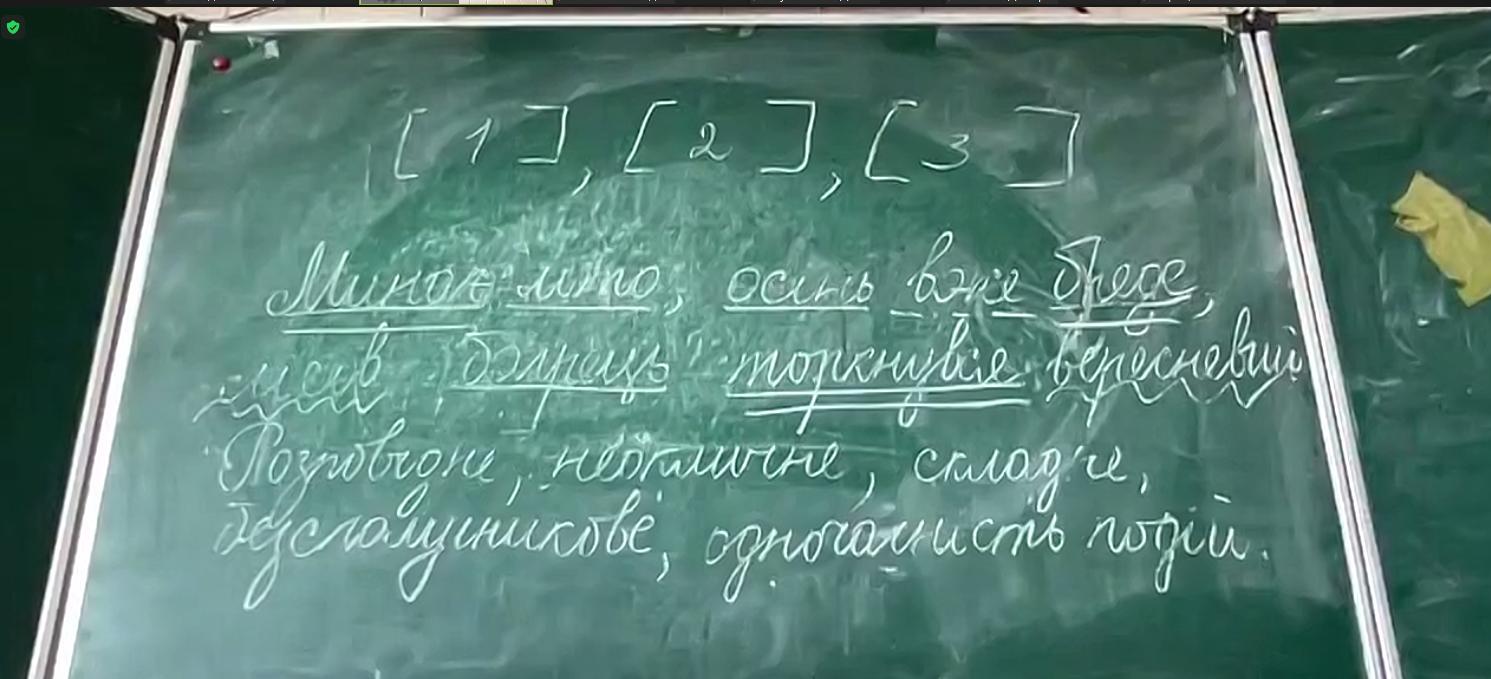 [ 1 ], [ 2 ], [ 3 ]
Минає літо, осінь вже бреде,
лісів багрець торкнувся вересневий
Розповідне, неокличне, складне,
безсполучникове, одночасність подій.